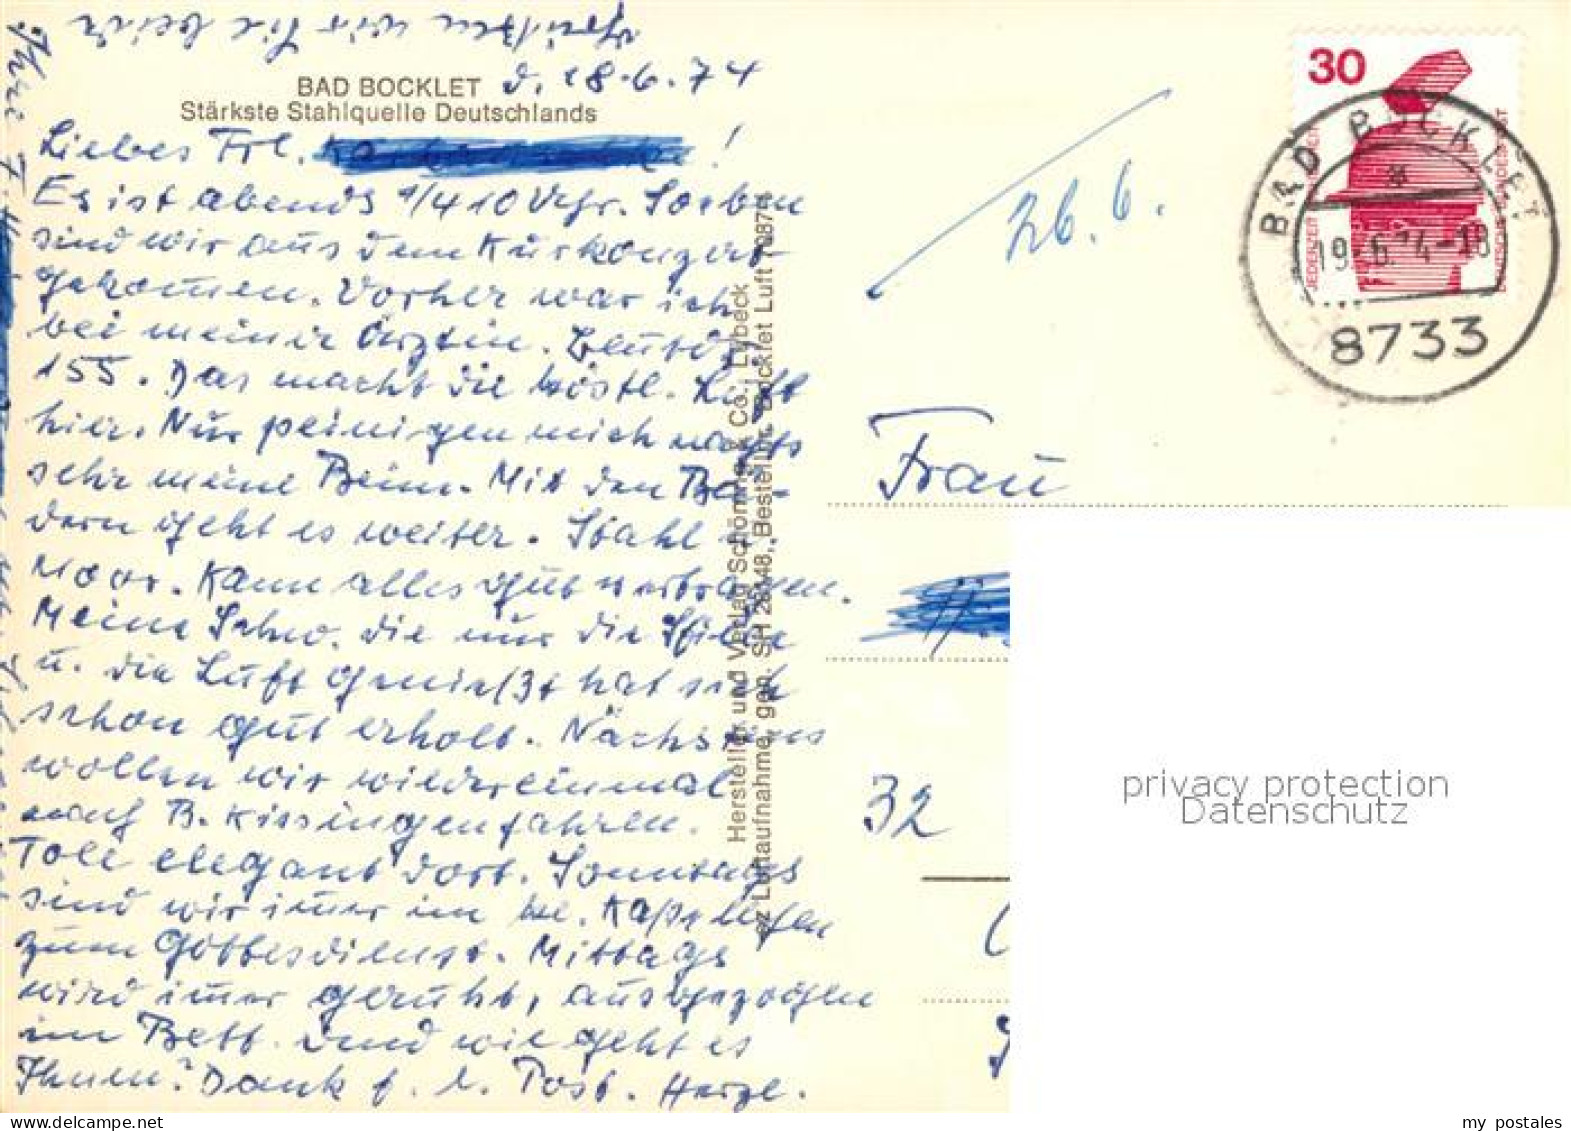 BAD BOCKLET
Stärkste Stahlquelle Deutschlands
d. 18.6.74
Liebes Frl. !
Es ist abends 1/4 10 Uhr. Soeben
sind wir aus dem Kurkonzert
gekommen. Vorher war ich
bei meiner Ärztin.
155. Das macht die köstl. Luft
hier. Nur peinigen mich nachts
sehr meine Beine. Mit den Bä-
dern geht es weiter. Stahl u.
Moor. Kann alles gut vertragen.
Meine Schw. die nur die Stille
u. die Luft genießt hat sich
schon gut erholt. Nächstens
wollen wir wiedereinmal
nach B. Kissingen fahren.
Toll elegant dort. Sonntags
sind wir immer im kl. Kapellchen
zum Gottesdienst. Mittags
wird immer geruht, ausgezogen
im Bett. Und wie geht es
Ihnen? Dank f. d. Post. Herzl.
grüßen wir Sie beide
Ihre
Hersteller und Verlag Schöning & Co., Lübeck
26.6.
30
JEDERZEIT
DEUTSCHE BUNDESPOST
BAD BOCKLET
19.6.74-18
8733
Frau
32
privacy protection
Datenschutz
my postales